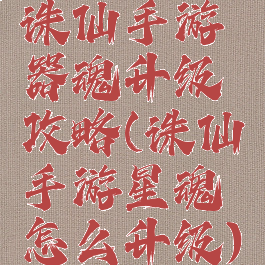 诛仙手游
器魂升级
攻略(诛仙
手游星魂
怎么升级)